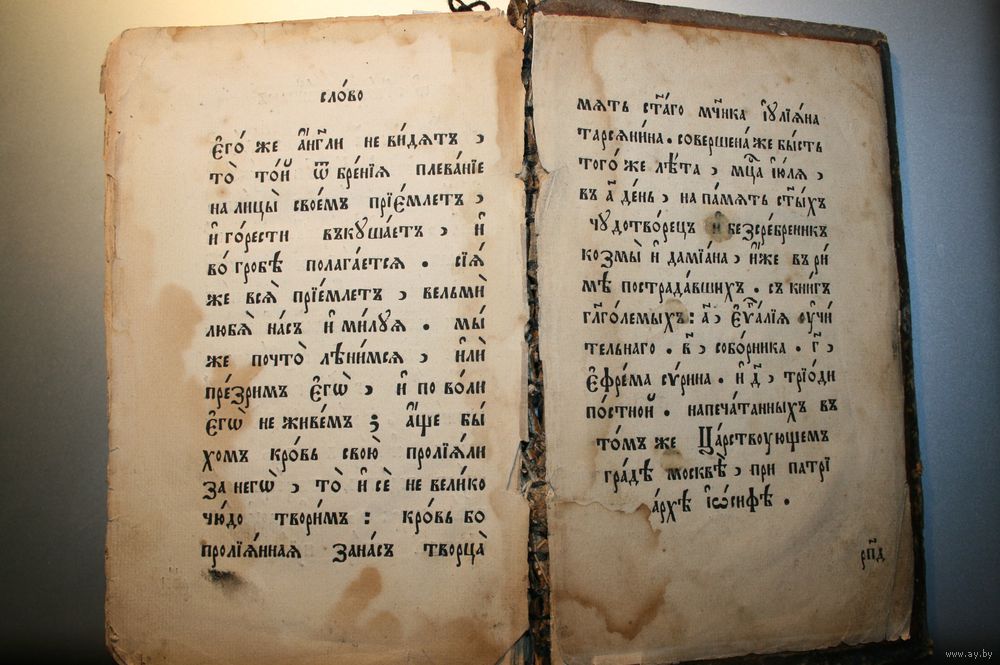 сло́во
є҆го́ же а҆́нг҃ли не ви́дѧтъ ,
то̀ то́й ѿ бре́нїѧ плева́нїе
на лицы̀ свое́мъ прїе́млетъ ,
и҆ го́рести вкꙋша́етъ , и҆
во́ гробѣ полага́етсѧ . сїѧ̀
же всѧ̀ прїе́млетъ , вельмѝ
любѧ̀ на́съ и҆ ми́лꙋѧ . мы́
же почто̀ лѣ́нимсѧ , и҆лѝ
пре́зримъ є҆гѡ̀ , и҆ по во́ли
є҆гѡ̀ не живе́мъ ; а҆́ще бы́
хомъ кро́вь свою̀ пролїѧ́ли
за негѡ̀ , то̀ и҆ сѐ не вели́ко
чю́до твори́мъ : кро́вь бо
пролїѧ́ннаѧ за на́съ творца̀
мѧть ст҃а́го мч҃ника і҆ꙋлїѧ́на
тарсѧни́на . соверше́на же бы́сть
того́ же лѣ́та , мц҃а і҆ю́лѧ ,
въ а҃ де́нь , на па́мѧть ст҃ы́хъ
чꙋдотво́рецъ и҆ безсре́бреникъ
козмы̀ и҆ дамїа́на , и҆́же въ ри́
мѣ пострада́вшихъ . съ кни́гъ
гл҃го́лемыхъ : а҃ , є҆ѵⷢ҇а́лїѧ ᲂу҆чи́
тельнаго . в҃ , собо́рника . г҃ ,
є҆фре́ма сѵ́рина . и҆ д҃ , трїо́ди
по́стной . напеча́танныхъ въ
то́мъ же Ца́рствꙋющемъ
гра́дѣ москвѣ̀ , при патрї
а́рхѣ і҆ѡ́сифѣ .
рп҃д
www.ay.by